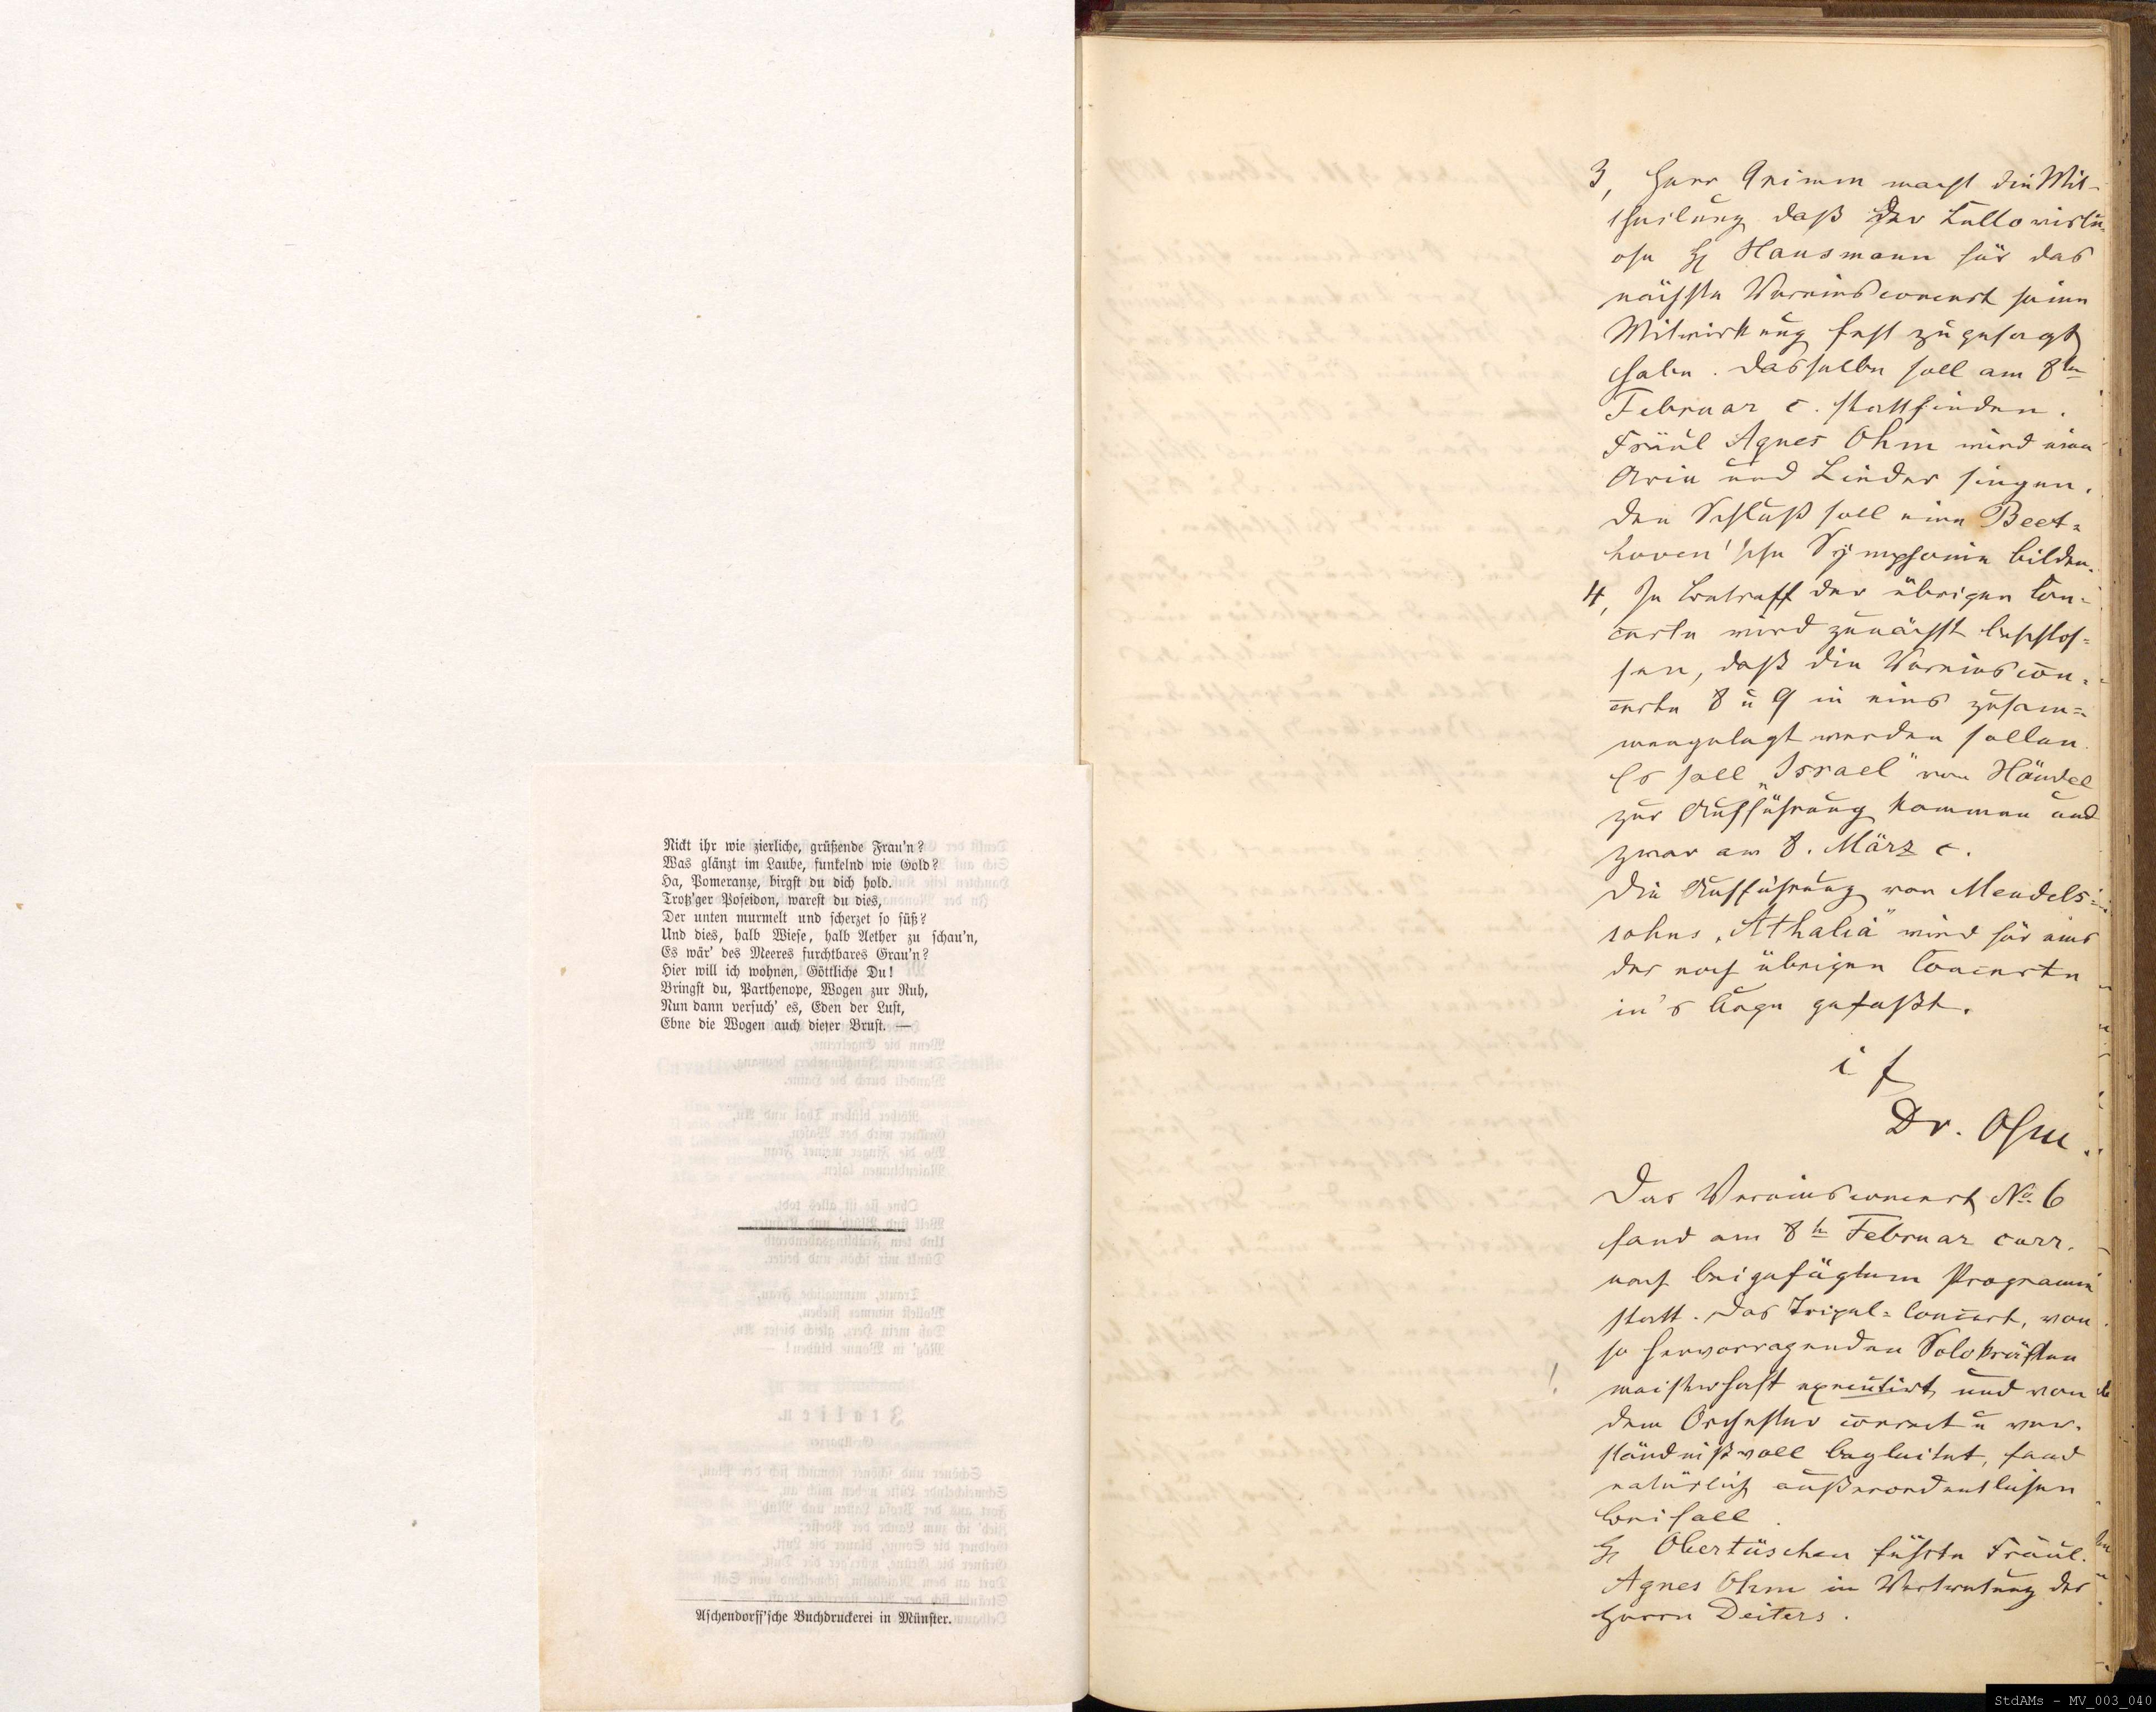 Nickt ihr wie zierliche, grüßende Frau'n?
Was glänzt im Laube, funkelnd wie Gold?
Ha, Pomeranze, birgst du dich hold.
Trotz'ger Poseidon, warest du dies,
Der unten murmelt und scherzet so süß?
Und dies, halb Wiese, halb Aether zu schau'n,
Es wär' des Meeres furchtbares Grau'n?
Hier will ich wohnen, Göttliche Du!
Bringst du, Parthenope, Wogen zur Ruh,
Nun dann versuch' es, Eden der Lust,
Ebne die Wogen auch dieser Brust. —
Aschendorff'sche Buchdruckerei in Münster.
3, Herr Grimm macht die Mit-
theilung daß der Cellovirtu-
ose H Hausmann für das
nächste Vereinsconcert seine
Mitwirkung fest zugesagt
habe. Dasselbe soll am 8ten
Februar c. stattfinden.
Fräul Agnes Ohm wird eine
Arie und Lieder singen.
Den Schluß soll eine Beet=
hoven'sche Symphonie bilden.
4, In Betreff der übrigen Con=
certe wird zunächst beschlos=
sen, daß die Vereinscon=
certe 8 u 9 in eins zusam=
mengelegt werden sollen.
Es soll „Israel" von Händel
zur Aufführung kommen und
zwar am 8. März c.
Die Aufführung von Mendels=
sohns „Athalia" wird für eins
der noch übrigen Concerte
in's Auge gefaßt.
i f
Dr. Ohm.
Das Vereinsconcert No 6
fand am 8t Februar curr.
nach beigefügtem Programm
statt. Das Tripel=Concert, von
so hervorragenden Solokräften
meisterhaft executirt und von
dem Orchester correct u ver=
ständnißvoll begleitet, fand
natürlich außerordentlichen
Beifall.
H Obertüschen führte Fräul.
Agnes Ohm in Vertretung des
Herrn Deiters.
StdAMs - MV_003_040